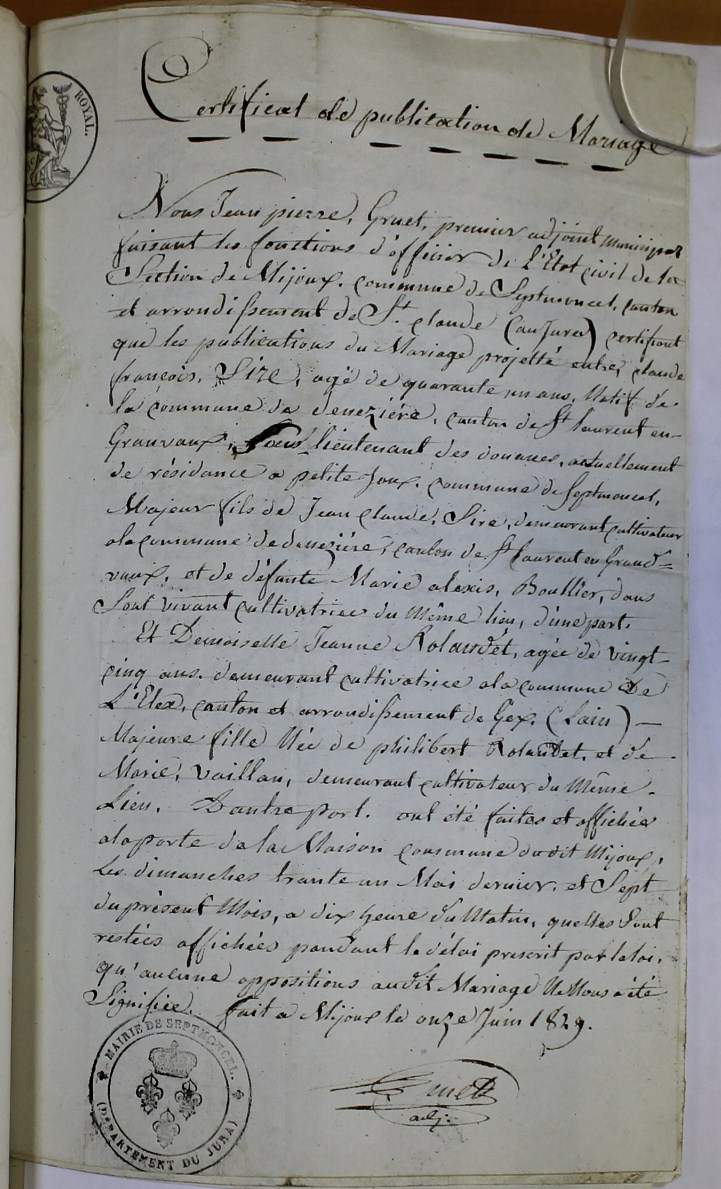 ROYAL.
Certificat de publication de Mariage
Nous Jean pierre, Gruet, premier adjoint municipal
faisant les fonctions d'officier de L'Etat civil de la
Section de Mijoux. commune de Septmoncel, canton
et arrondissement de St. claude (au Jura) certifiont
que les publications du Mariage projetté entre, claude
françois, Sire, agé de quarante un ans, Natif de
la commune de denezière, canton de St laurent en-
Granvaux, Sous lieutenant des douanes, actuellement
de résidance a petite Joux. commune de Septmoncel,
Majeur fils de Jean claude, Sire, demeurant cultivateur
a la commune de denezière, canton de St laurent en Grand-
vaux, et de défunte Marie alexis, Boullier, dans
Sont vivant cultivatrice du Même lieu, d'une part.
Et Demoiselle Jeanne Rolandét, agée de vingt-
cinq ans. demeurant cultivatrice a la commune De
L'Elex, canton et arrondissement de Gex. (Lain) —
Majeure fille Née de philibert Rolandet, et de
Marie, Vaillan, demeurant cultivateur du Même
Lieu. D'autre part. ont été faites et affichée
a la porte de la Maison commune dudit Mijoux,
Les dimanches trante un Mai dernier, et Sept
du présent Mois, a dix heure du Matin, quelles Sont
restées affichées pandant le délai prescrit par la loi,
qu'aucune oppositions audit Mariage Ne Nous a été
Signifiée. fait a Mijoux le onze Juin 1829.
Gruet
adj.
MAIRIE DE SEPTMONCEL.
(DÉPARTEMENT DU JURA)